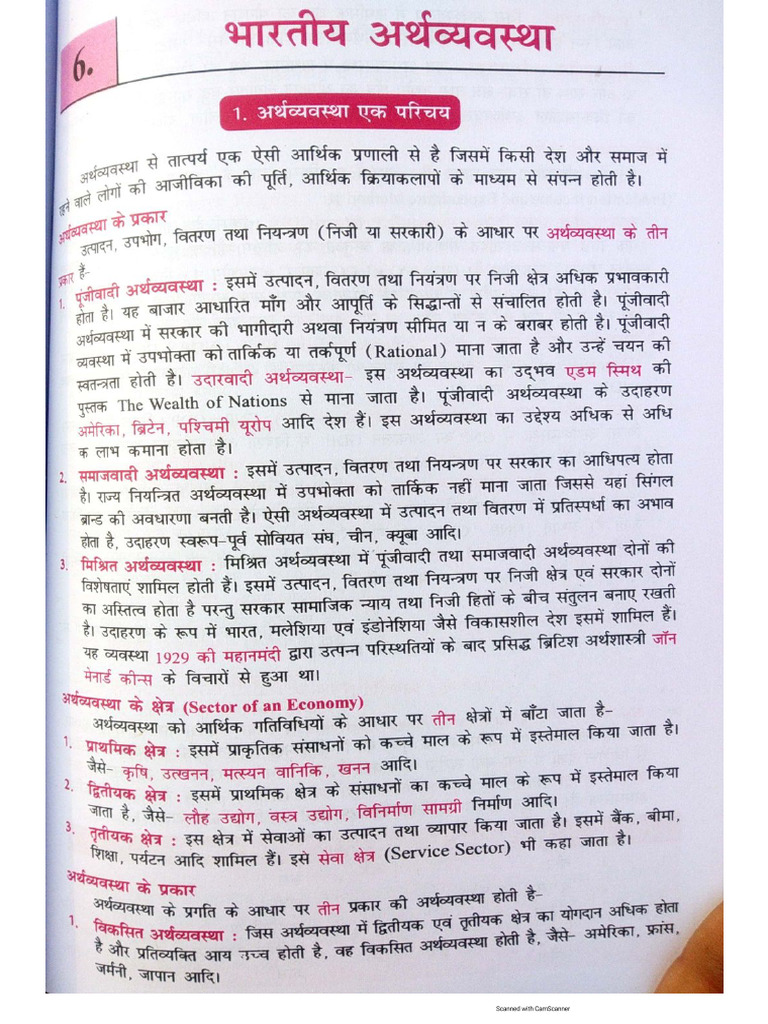 6.
भारतीय अर्थव्यवस्था
1. अर्थव्यवस्था एक परिचय
अर्थव्यवस्था से तात्पर्य एक ऐसी आर्थिक प्रणाली से है जिसमें किसी देश और समाज में
रहने वाले लोगों की आजीविका की पूर्ति, आर्थिक क्रियाकलापों के माध्यम से संपन्न होती है।
अर्थव्यवस्था के प्रकार
उत्पादन, उपभोग, वितरण तथा नियन्त्रण (निजी या सरकारी) के आधार पर अर्थव्यवस्था के तीन
प्रकार हैं-
1. पूंजीवादी अर्थव्यवस्था : इसमें उत्पादन, वितरण तथा नियंत्रण पर निजी क्षेत्र अधिक प्रभावकारी
होता है। यह बाजार आधारित माँग और आपूर्ति के सिद्धान्तों से संचालित होती है। पूंजीवादी
अर्थव्यवस्था में सरकार की भागीदारी अथवा नियंत्रण सीमित या न के बराबर होती है। पूंजीवादी
व्यवस्था में उपभोक्ता को तार्किक या तर्कपूर्ण (Rational) माना जाता है और उन्हें चयन की
स्वतन्त्रता होती है। उदारवादी अर्थव्यवस्था- इस अर्थव्यवस्था का उद्भव एडम स्मिथ की
पुस्तक The Wealth of Nations से माना जाता है। पूंजीवादी अर्थव्यवस्था के उदाहरण
अमेरिका, ब्रिटेन, पश्चिमी यूरोप आदि देश हैं। इस अर्थव्यवस्था का उद्देश्य अधिक से अधि
क लाभ कमाना होता है।
2. समाजवादी अर्थव्यवस्था : इसमें उत्पादन, वितरण तथा नियन्त्रण पर सरकार का आधिपत्य होता
है। राज्य नियन्त्रित अर्थव्यवस्था में उपभोक्ता को तार्किक नहीं माना जाता जिससे यहां सिंगल
ब्रान्ड की अवधारणा बनती है। ऐसी अर्थव्यवस्था में उत्पादन तथा वितरण में प्रतिस्पर्धा का अभाव
होता है, उदाहरण स्वरूप-पूर्व सोवियत संघ, चीन, क्यूबा आदि।
3. मिश्रित अर्थव्यवस्था : मिश्रित अर्थव्यवस्था में पूंजीवादी तथा समाजवादी अर्थव्यवस्था दोनों की
विशेषताएं शामिल होती हैं। इसमें उत्पादन, वितरण तथा नियन्त्रण पर निजी क्षेत्र एवं सरकार दोनों
का अस्तित्व होता है परन्तु सरकार सामाजिक न्याय तथा निजी हितों के बीच संतुलन बनाए रखती
है। उदाहरण के रूप में भारत, मलेशिया एवं इंडोनेशिया जैसे विकासशील देश इसमें शामिल हैं।
यह व्यवस्था 1929 की महानमंदी द्वारा उत्पन्न परिस्थितियों के बाद प्रसिद्ध ब्रिटिश अर्थशास्त्री जॉन
मेनार्ड कीन्स के विचारों से हुआ था।
अर्थव्यवस्था के क्षेत्र (Sector of an Economy)
अर्थव्यवस्था को आर्थिक गतिविधियों के आधार पर तीन क्षेत्रों में बाँटा जाता है-
1. प्राथमिक क्षेत्र : इसमें प्राकृतिक संसाधनों को कच्चे माल के रूप में इस्तेमाल किया जाता है।
जैसे- कृषि, उत्खनन, मत्स्यन वानिकि, खनन आदि।
2. द्वितीयक क्षेत्र : इसमें प्राथमिक क्षेत्र के संसाधनों का कच्चे माल के रूप में इस्तेमाल किया
जाता है, जैसे- लौह उद्योग, वस्त्र उद्योग, विनिर्माण सामग्री निर्माण आदि।
3. तृतीयक क्षेत्र : इस क्षेत्र में सेवाओं का उत्पादन तथा व्यापार किया जाता है। इसमें बैंक, बीमा,
शिक्षा, पर्यटन आदि शामिल हैं। इसे सेवा क्षेत्र (Service Sector) भी कहा जाता है।
अर्थव्यवस्था के प्रकार
अर्थव्यवस्था के प्रगति के आधार पर तीन प्रकार की अर्थव्यवस्था होती है-
1. विकसित अर्थव्यवस्था : जिस अर्थव्यवस्था में द्वितीयक एवं तृतीयक क्षेत्र का योगदान अधिक होता
है और प्रतिव्यक्ति आय उच्च होती है, वह विकसित अर्थव्यवस्था होती है, जैसे- अमेरिका, फ्रांस,
जर्मनी, जापान आदि।
Scanned with CamScanner